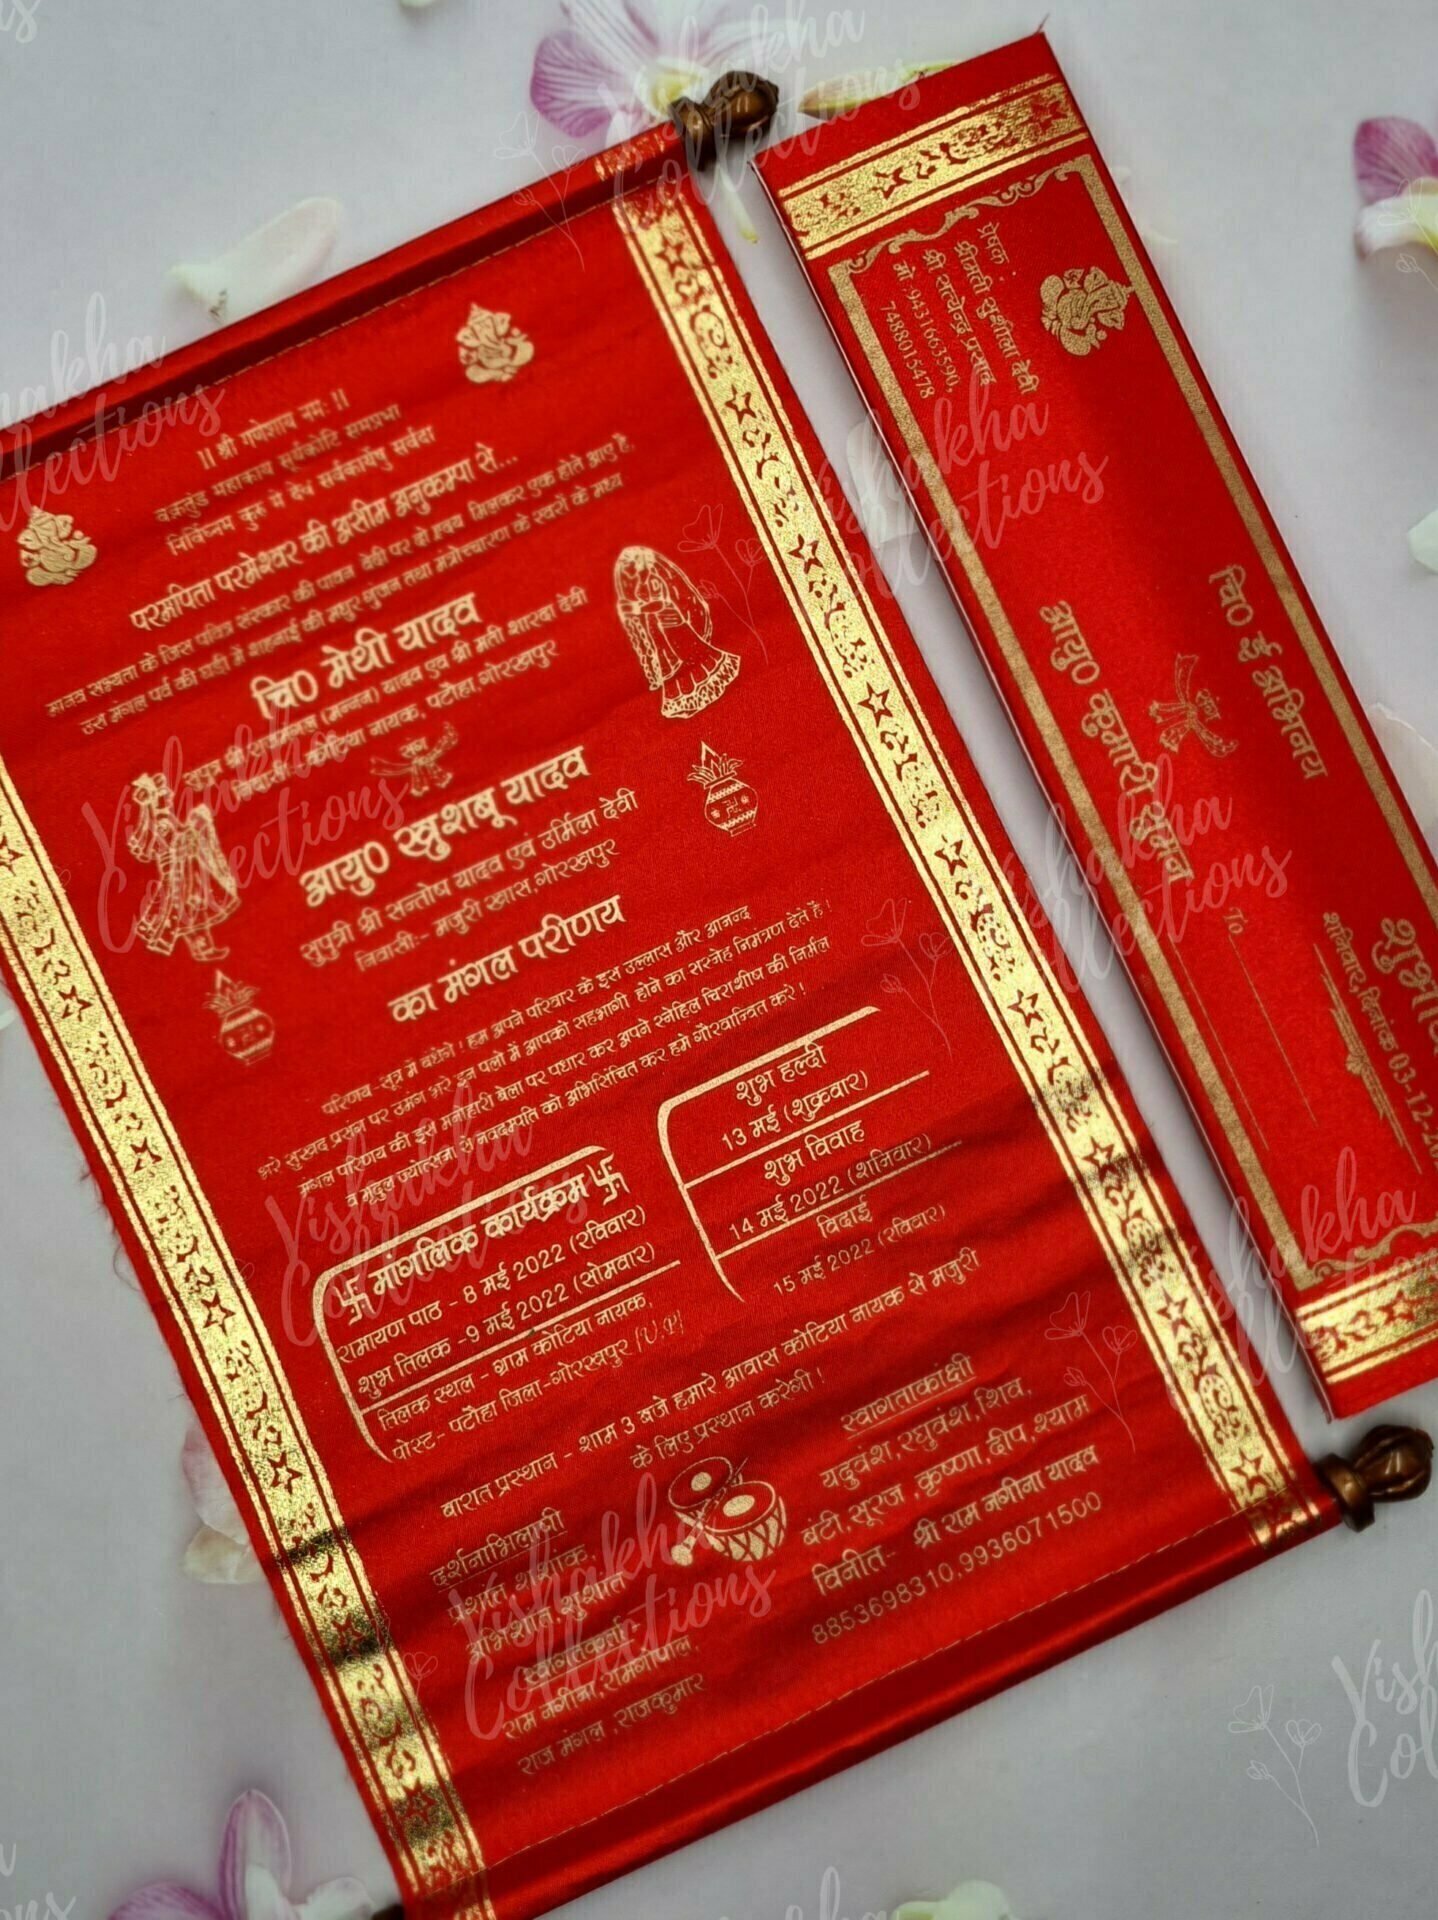 || श्री गणेशाय नमः ||
वक्रतुंड महाकाय सूर्यकोटि समप्रभा
निर्विघ्नम कुरु मे देव सर्वकार्येषु सर्वदा
परमपिता परमेश्वर की असीम अनुकम्पा से...
मानव सभ्यता के जिस पवित्र संस्कार की पावन वेदी पर दो हृदय मिलकर एक होते आए है,
उस मंगल पर्व की घड़ी में शहनाई की मधुर गुंजन तथा मंत्रोच्चारण के स्वरों के मध्य
चि0 मेथी यादव
सुपुत्र श्री (मन्नन) यादव एवं श्री मती शारदा देवी
निवासी:- कोटिया नायक, पटौहा,गोरखपुर
संग
आयु0 खुशबू यादव
सुपुत्री श्री सन्तोष यादव एवं उर्मिला देवी
निवासी:- मजुरी खास,गोरखपुर
का मंगल परीणय
परिणय-सूत्र में बधेंगे ! हम अपने परिवार के इस उल्लास और आनन्द
भरे सुखद प्रसंग पर उमंग भरे इन पलो में आपको सहभागी होने का सस्नेह निमंत्रण देते है !
मंगल परिणय की इस मनोहारी बेला पर पधार कर अपने स्नेहिल चिराशीष की निर्मल
व मृदुल ज्योत्सना से नवदम्पति को अभिसिंचित कर हमे गौरवान्वित करे !
卐 मांगलिक कार्यक्रम 卐
रामायण पाठ - 8 मई 2022 (रविवार)
शुभ तिलक -9 मई 2022 (सोमवार)
तिलक स्थल - ग्राम कोटिया नायक,
पोस्ट- पटौहा जिला-गोरखपुर (U.P)
शुभ हल्दी
13 मई (शुक्रवार)
शुभ विवाह
14 मई 2022 (शनिवार)
विदाई
15 मई 2022 (रविवार)
बारात प्रस्थान - शाम 3 बजे हमारे आवास कोटिया नायक से मजुरी
के लिए प्रस्थान करेगी !
दर्शनाभिलाषी
अशोक,
अभिशांत,शुशांत
स्वागतकर्ता
राम नगीना,रामगोपाल,
राज मंगल ,राजकुमार
स्वागताकांक्षी
यदुवंश,रघुवंश,शिव,
बंटी,सूरज ,कृष्णा,दीप,श्याम
विनीत- श्री राम नगीना यादव
8853698310,9936071500
प्रेषक :
श्रीमती सुशीला देवी
श्री सत्येन्द्र प्रसाद
मो: 9431663590,
7488015478
चि0 ई अभिनय
संग
आयु0 कुमारी डिम्पल
To
शनिवार,दिनांक 03-12-20
Vishakha
Collections